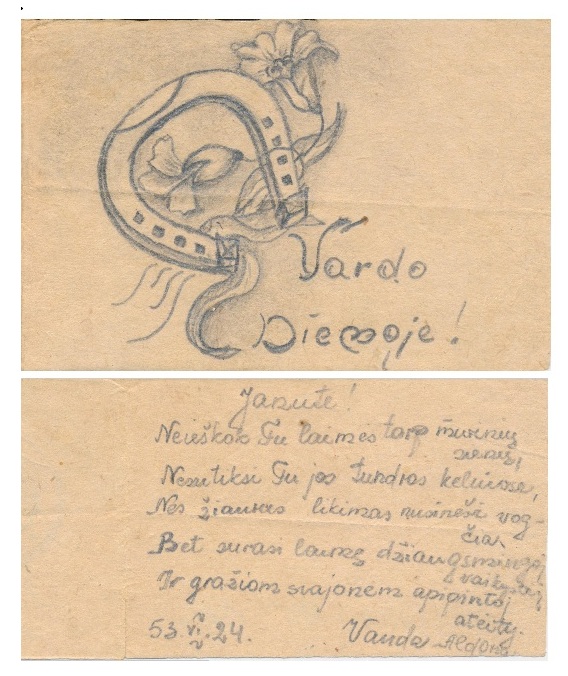 Vardo
Dienoje!
Janute!
Neieškok Tu laimes tarp murinių
sienų,
Nesutiksi Tu jos tundros keliuose,
Nes žiaurus likimas nusinešė vog-
čia
Bet surasi laimę džiaugsmingoj
Ir gražiom svajonem apipintoj
ateity.
53.VI.24. Vanda Aldona